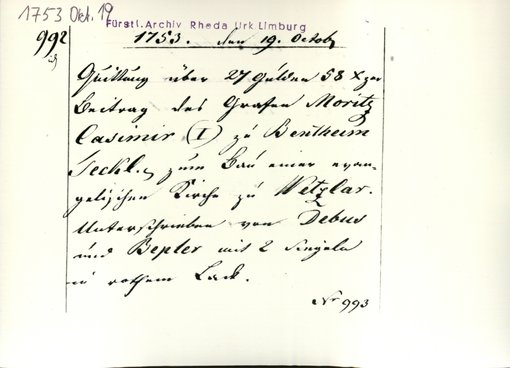 1753 Okt. 19
Fürstl. Archiv Rheda Urk Limburg
992
1753. den 19. Octob
Quittung über 27 Gulden 58 xzer
Beitrag des Grafen Moritz
Casimir (I) zu Bentheim
Teckl. zum Bau einer evan-
gelischen Kirche zu Wetzlar.
Unterschrieben von Debus
und Bepler mit 2 Singeln
in rothem Lack.
Nr 993